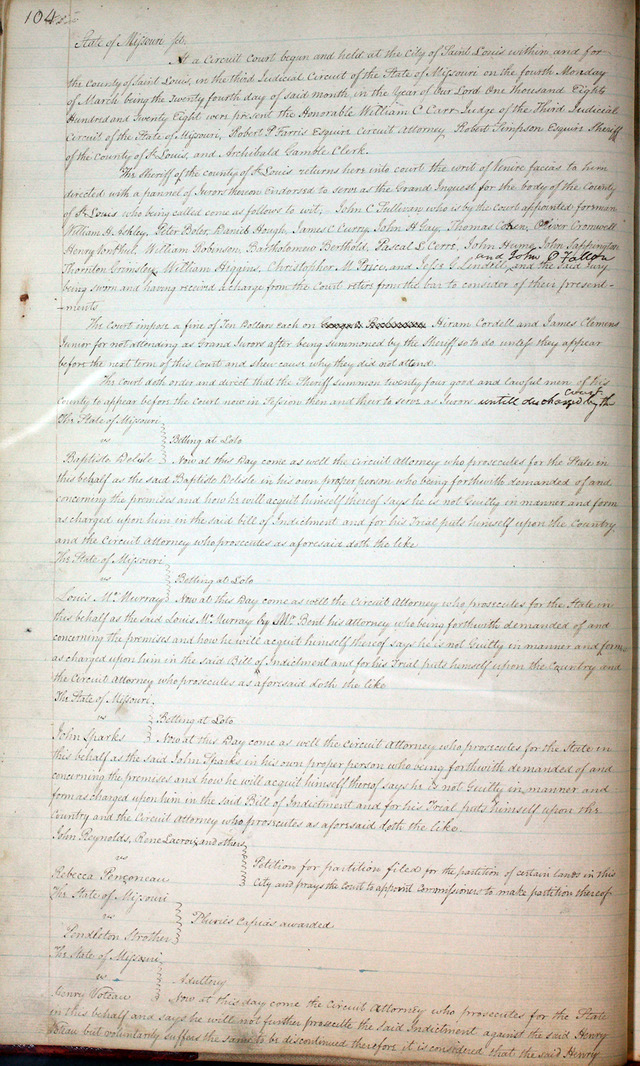 104
State of Missouri sct.
At a Circuit Court begun and held at the City of Saint Louis within and for
the County of Saint Louis, in the third Judicial Circuit of the State of Missouri on the fourth Monday
of March being the twenty fourth day of said month, in the Year of Our Lord One Thousand Eight
Hundred and Twenty Eight were present the Honorable William C Carr Judge of the Third Judicial
Circuit of the State of Missouri, Robert P. Farris Esquire Circuit Attorney Robert Simpson Esquire Sheriff
of the County of St. Louis, and Archibald Gamble Clerk.
The Sheriff of the county of St. Louis returns here into court the writ of Venire facias to him
directed with a pannel of Jurors thereon Endorsed to serve as the Grand Inquest for the body of the County
of St. Louis who being called come as follows to wit, John C Sullivan who is by the Court appointed forman
William H. Ashley, Peter Boler, Daniel Hough, James C Curry, John H Gay, Thomas Cohen, Oliver Cromwell
Henry VonPhul, William Robinson, Bartholomew Berthold, Pascal L Cerre, John Hume, John Sappington
Thornton Grimsley, William Higgins, Christopher M. Price, and Jesse G Lindell and John O'Fallon and the said Jury
being sworn and having received a charge from the Court retire from the bar to consider of their present-
-ments
The Court impose a fine of Ten Dollars each on Hiram Cordell and James Clemens
Junior for not attending as Grand Jurors after being summoned by the Sheriff so to do unless they appear
before the next term of this Court and shew cause why they did not attend.
The Court doth order and direct that the Sheriff summon twenty four good and lawful men of his
county to appear before the Court now in Session then and their to serve as Jurors untill discharged by the Court
The State of Missouri
vs
Betting at Lolo
Baptiste Delisle
Now at this Day come as well the Circuit Attorney who prosecutes for the State in
this behalf as the said Baptiste Delisle in his own proper person who being forthwith demanded of and
concerning the premises and how he will acquit himself thereof says he is not Guilty in manner and form
as charged upon him in the said bill of Indictment and for his Trial puts himself upon the Country
and the Circuit Attorney who prosecutes as aforesaid doth the like
The State of Missouri
vs
Betting at Lolo
Louis Mc. Murray
Now at this Day come as well the Circuit Attorney who prosecutes for the State in
this behalf as the said Louis Mc Murray by Mr. Bent his attorney who being forthwith demanded of and
concerning the premises and how he will acquit himself thereof says he is not Guilty in manner and form
as charged upon him in the said Bill of Indictment and for his Trial puts himself upon the Country and
the Circuit Attorney who prosecutes as aforesaid doth the like
The State of Missouri
vs
Betting at Lolo
John Sparks
Now at this Day come as well the Circuit Attorney who prosecutes for the State in
this behalf as the said John Sparks in his own proper person who being forthwith demanded of and
concerning the premises and how he will acquit himself thereof says he is not Guilty in manner and
form as charged upon him in the said Bill of Indictment and for his Trial puts himself upon the
Country and the Circuit Attorney who prosecutes as aforesaid doth the like.
John Reynolds, Rene Lacroix and others
vs
Rebecca Ponconeau
Petition for partition filed for the partition of certain lands in this
City and prays the Court to appoint commissioners to make partition thereof
The State of Missouri
vs
Pluries Capias awarded
Pendleton Strother
The State of Missouri
vs
Adultery
Henry Voteau
Now at this day come the Circuit Attorney who prosecutes for the State
in this behalf and says he will not further prosecute the said Indictment against the said Henry
but voluntarily suffers the same to be discontinued therefore it is considered that the said Henry